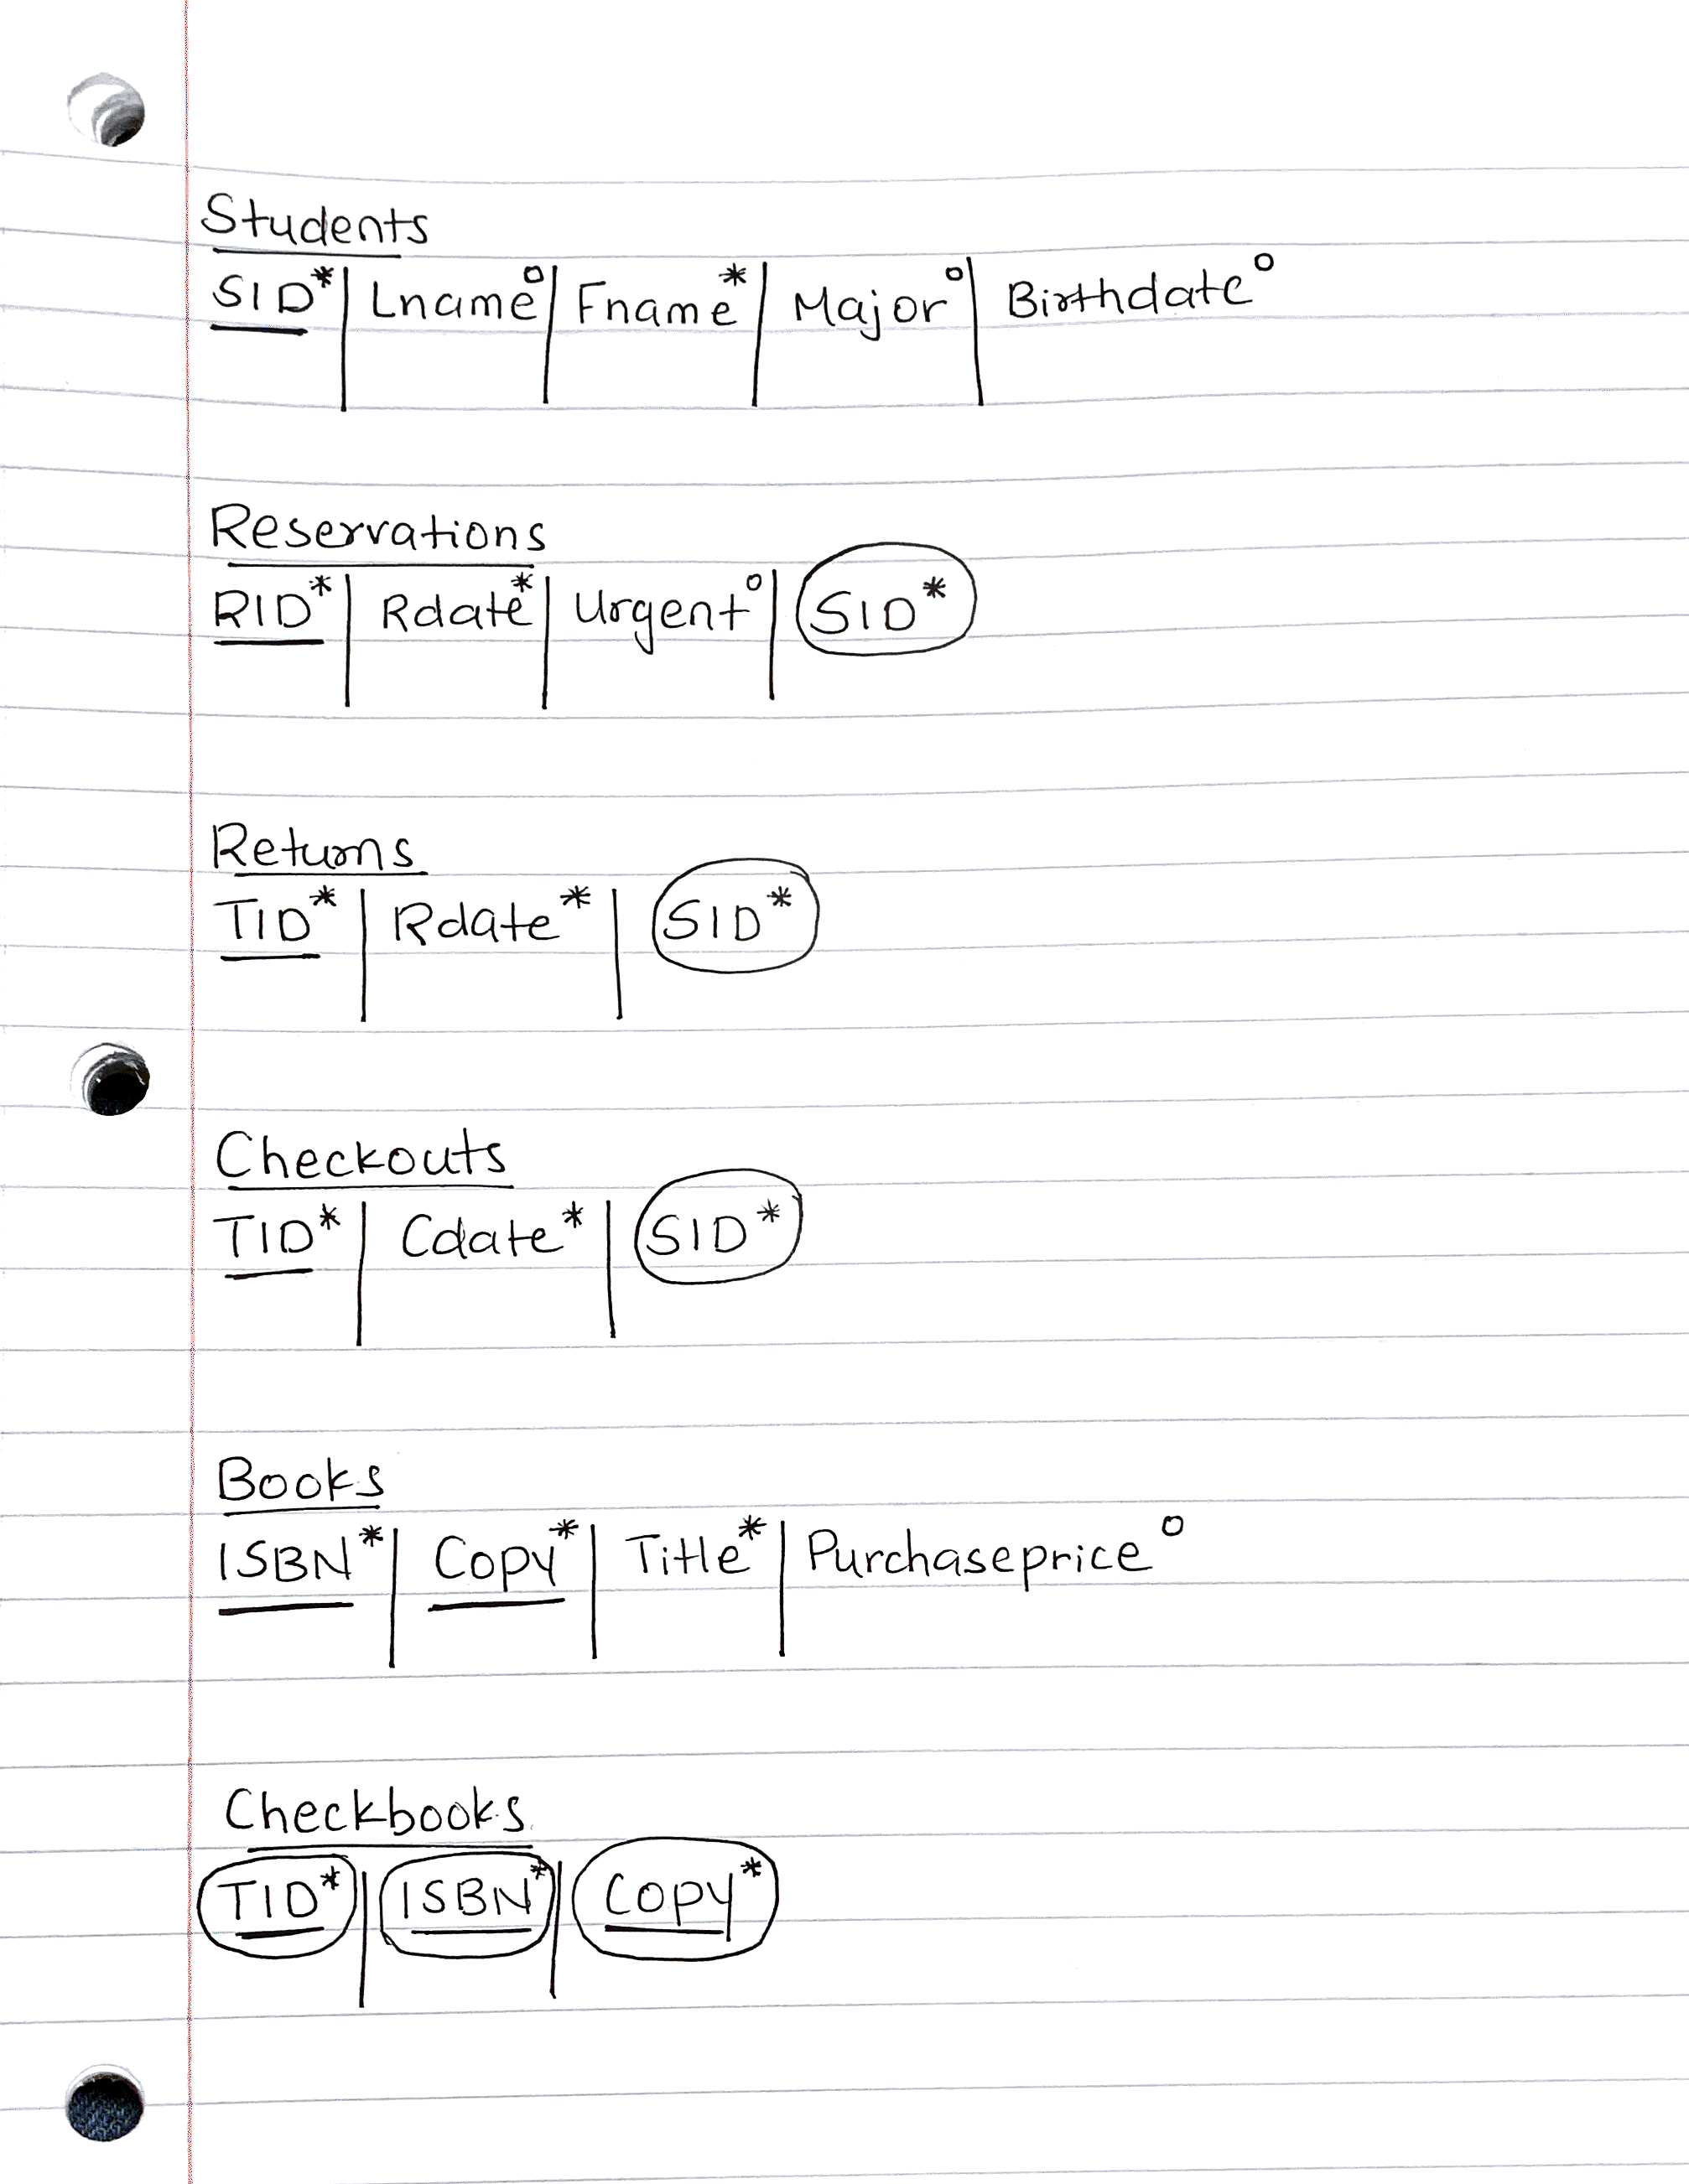 Students
SID* | Lname° | Fname* | Major° | Birthdate°
Reservations
RID* | Rdate* | Urgent° | SID*
Returns
TID* | Rdate* | SID*
Checkouts
TID* | Cdate* | SID*
Books
ISBN* | Copy* | Title* | Purchaseprice°
Checkbooks
TID* | ISBN* | Copy*